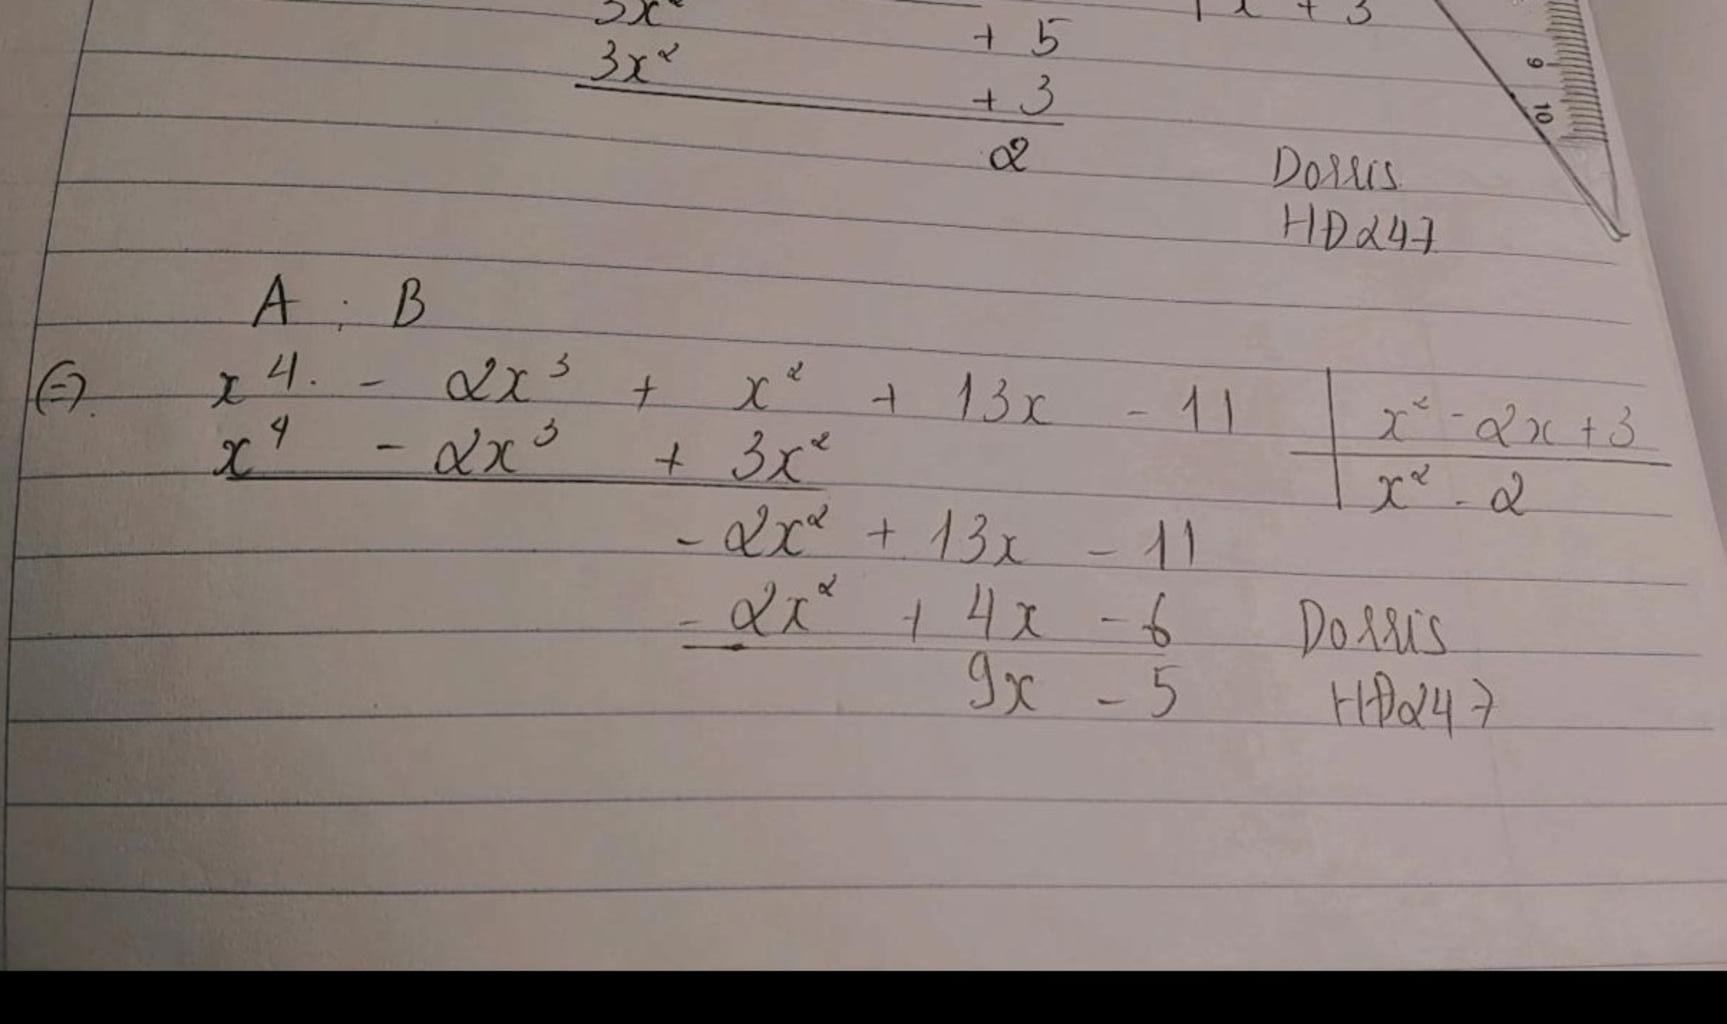 3x² + 5
x + 3
3x² + 3
2
Dorris
HD247
A : B
(=) x⁴ - 2x³ + x² + 13x - 11 | x² - 2x + 3
x⁴ - 2x³ + 3x² | x² - 2
- 2x² + 13x - 11
- 2x² + 4x - 6
9x - 5
Dorris
HD247
9
10